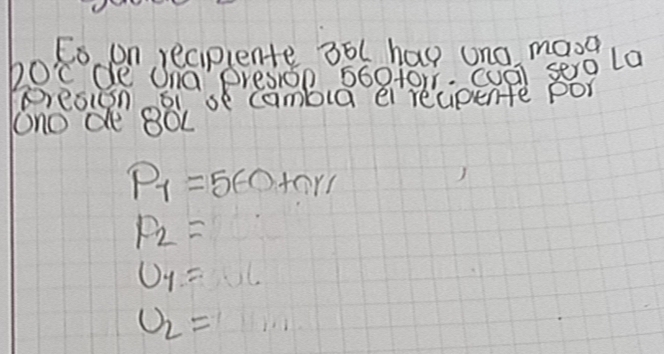 En un recipiente 30L hay una masa
20°C de una presión 560torr. cual sera La
Presión si se cambia el recipente por
Uno de 80L
P1 = 560torr
P2 =
U1 =
U2 =